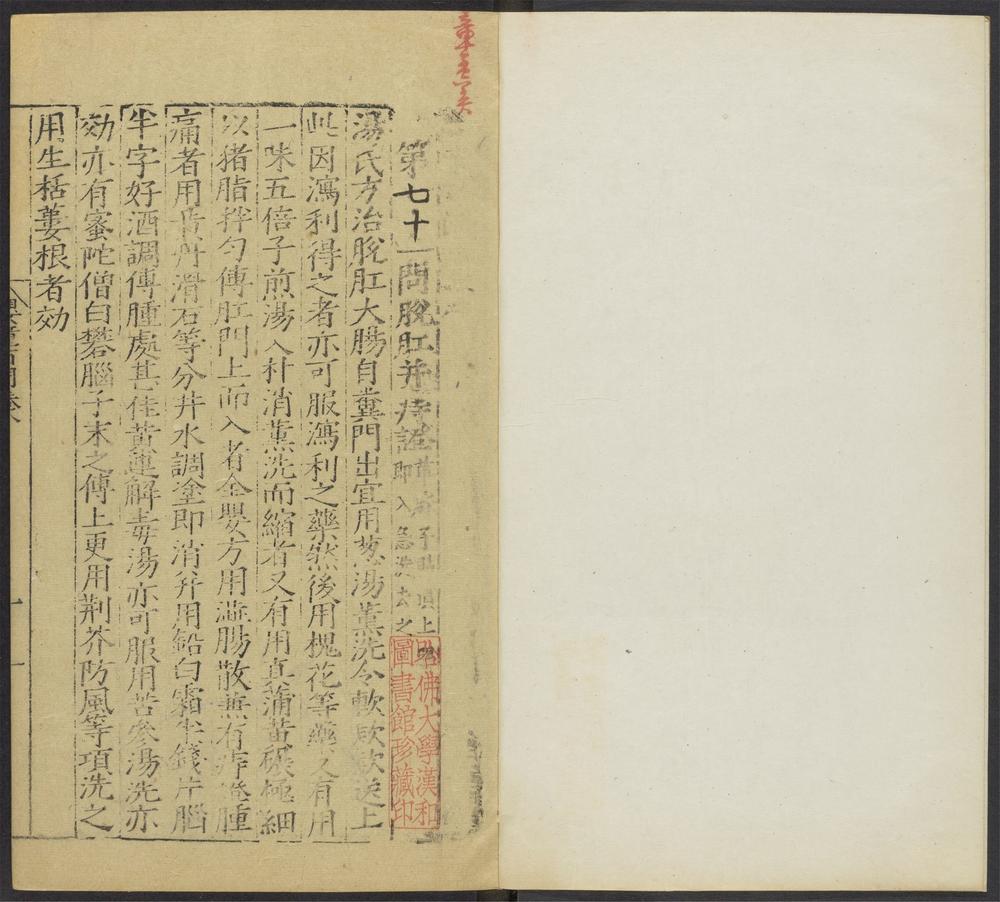 第七十一問脫肛并痔證
即入急洗去之
湯氏方治脫肛大腸自糞門出宜用葱湯薰洗令軟款款送上
此因瀉利得之者亦可服瀉利之藥然後用槐花等藥又有用
一味五倍子煎湯入朴消薰洗而縮者又有用真蒲黄碾極細
以猪脂拌匀傅肛門上而入者全嬰方用澁腸散兼有痔瘡腫
痛者用黄丹滑石等分井水調塗即消并用鉛白霜半錢片腦
半字好酒調傅腫處甚佳黄連解毒湯亦可服用苦參湯洗亦
効亦有蜜陀僧白礬腦子末之傅上更用荆芥防風等項洗之
用生栝蔞根者効
哈佛大學漢和
圖書館珍藏印